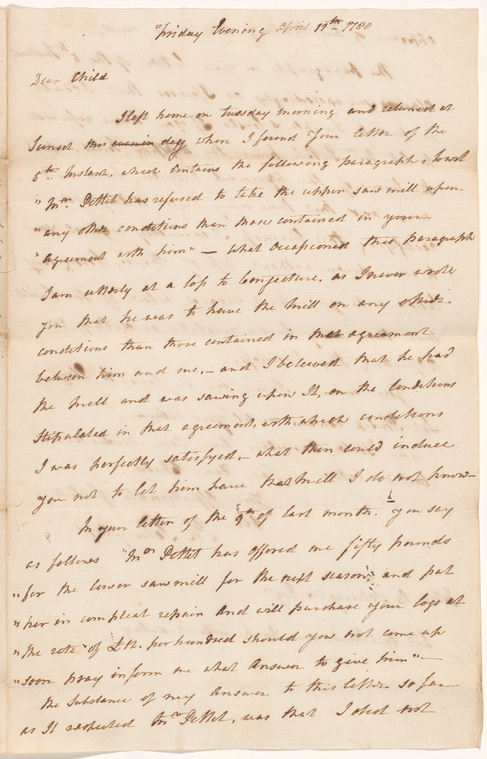 Friday Evening April 11th 1780
Dear Child
I left home on tuesday morning and returned at
Sunset this day when I found your letter of the
5th Instant, which contains the following paragraph
" Mr. Pettet has refused to take the upper saw mill upon
" any other conditions than those contained in your
" agreement with him" – what occassioned that paragraph
I am utterly at a loss to Conjecture, as I never wrote
you that he was to have the mill on any other
conditions than those contained in that agreement
between him and me, – and I beleeved that he had
the mill and was sawing upon It, on the Conditions
Stipulated in that agreement, with which conditions
I was perfectly satisfyed, – what then could induce
you not to let him have that mill I do not know –
In your letter of the 9th of last month, you say
as follows "Mr Pettet has offered me fifty pounds
" for the lower sawmill for the next season, and put
" her in compleat repair And will purchase your logs at
" the rate of £12. per hundred should you not come up
" soon pray inform me what Answer to give him" –
the Substance of my Answer to this letter so far
as It respected Mr Pettet, was that I did not